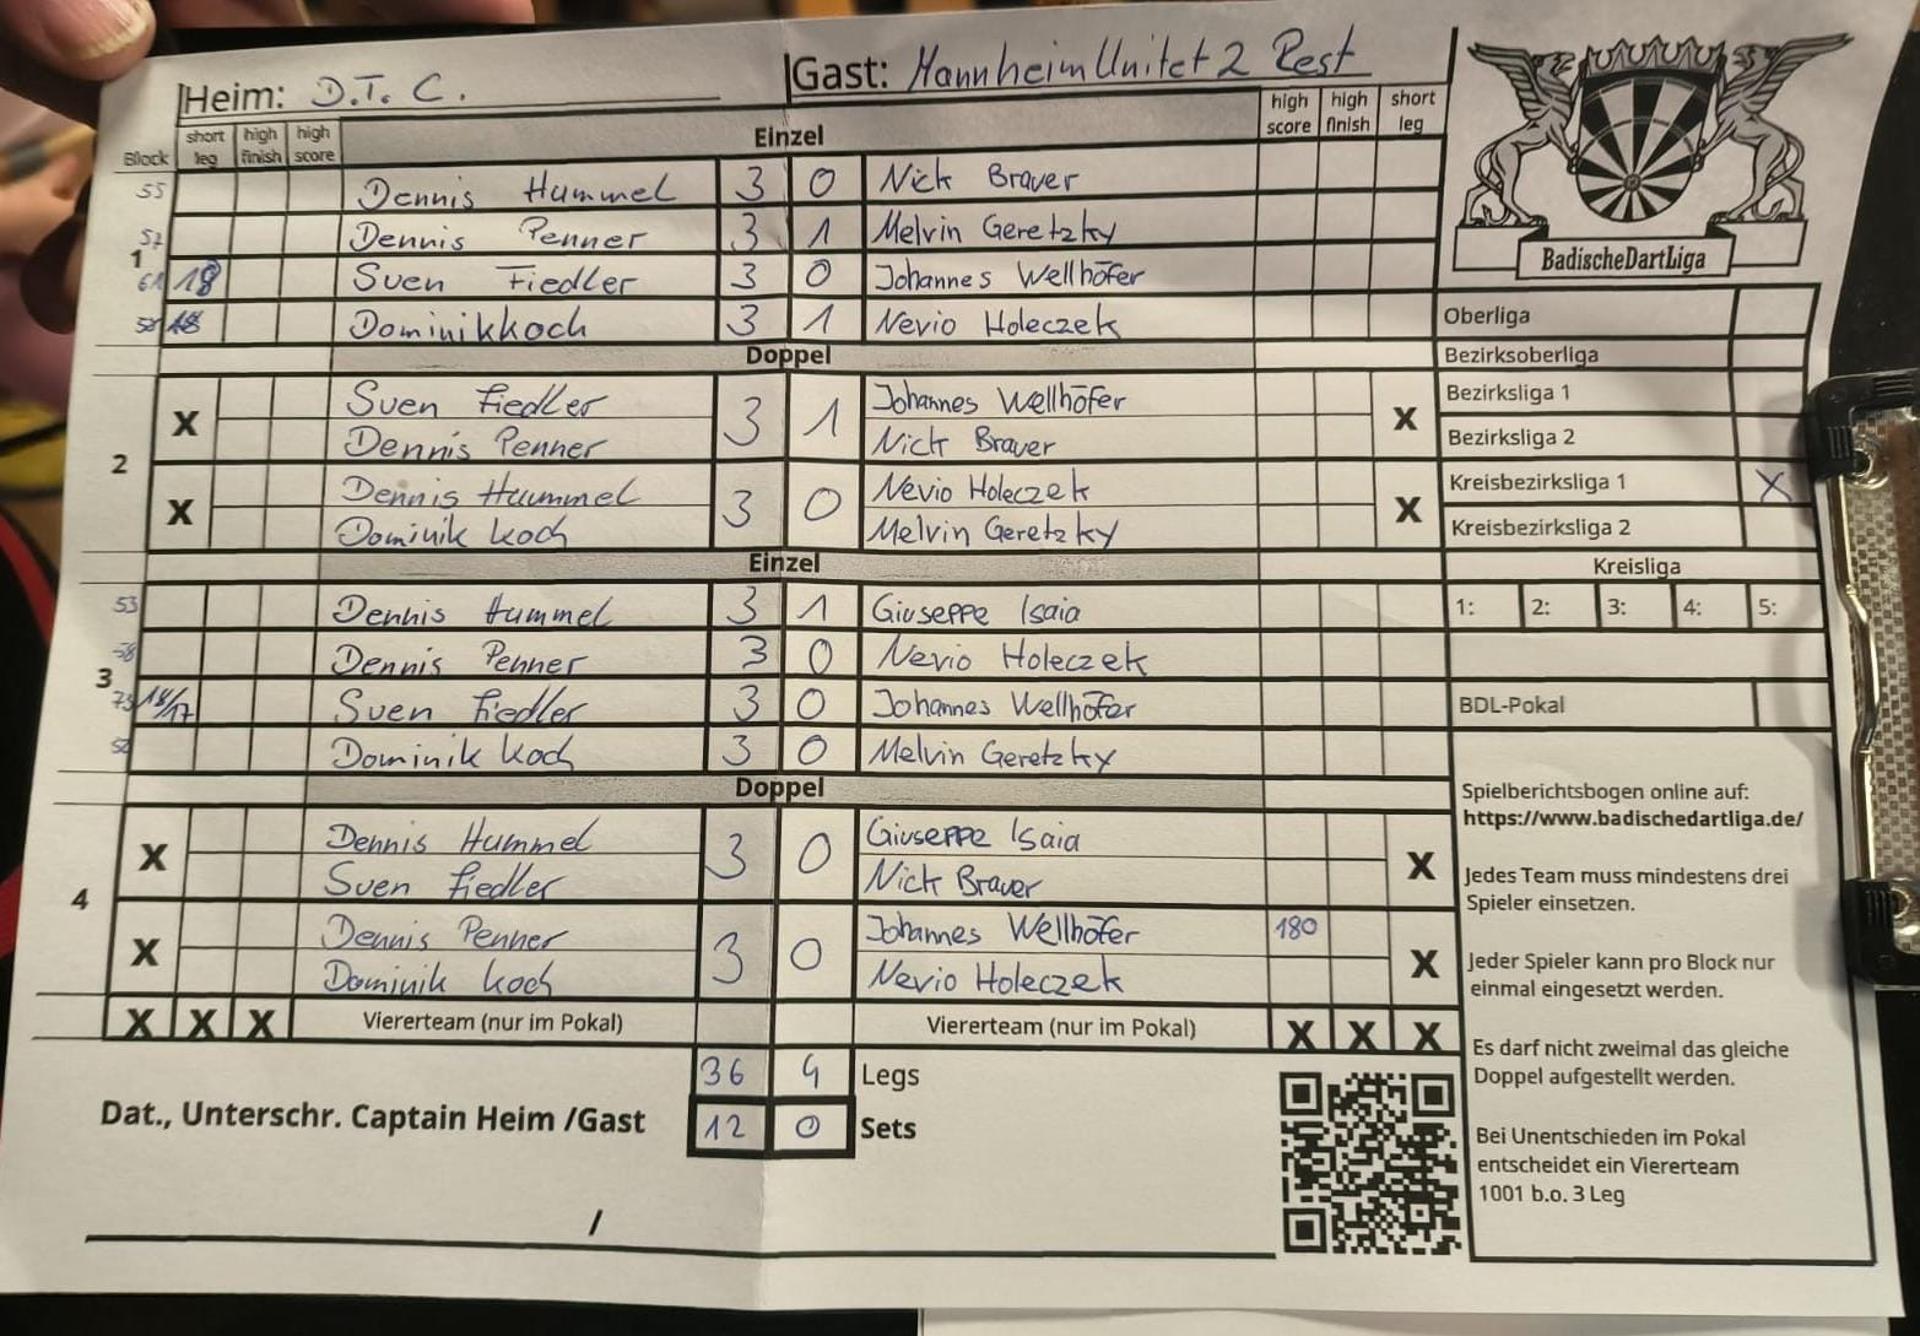 Heim: D.T.C. Gast: Mannheim Unitet 2 Rest
Block short leg high finish high score Einzel high score high finish short leg
55 Dennis Hummel 3 0 Nick Brauer
57 Dennis Penner 3 1 Melvin Geretzky
1
61 18 Sven Fiedler 3 0 Johannes Wellhöfer
18 Dominik Koch 3 1 Nevio Holeczek
Doppel
X Sven Fiedler 3 1 Johannes Wellhöfer X
Dennis Penner Nick Brauer
2
X Dennis Hummel 3 0 Nevio Holeczek X
Dominik Koch Melvin Geretzky
Einzel
53 Dennis Hummel 3 1 Giuseppe Isaia
58 Dennis Penner 3 0 Nevio Holeczek
3
73 18/17 Sven Fiedler 3 0 Johannes Wellhöfer
52 Dominik Koch 3 0 Melvin Geretzky
Doppel
X Dennis Hummel 3 0 Giuseppe Isaia X
Sven Fiedler Nick Brauer
4
X Dennis Penner 3 0 Johannes Wellhöfer 180 X
Dominik Koch Nevio Holeczek
X X X Viererteam (nur im Pokal) Viererteam (nur im Pokal) X X X
36 4 Legs
Dat., Unterschr. Captain Heim /Gast 12 0 Sets
/
BadischeDartLiga
Oberliga
Bezirksoberliga
Bezirksliga 1
Bezirksliga 2
Kreisbezirksliga 1 X
Kreisbezirksliga 2
Kreisliga
1: 2: 3: 4: 5:
BDL-Pokal
Spielberichtsbogen online auf:
https://www.badischedartliga.de/
Jedes Team muss mindestens drei
Spieler einsetzen.
Jeder Spieler kann pro Block nur
einmal eingesetzt werden.
Es darf nicht zweimal das gleiche
Doppel aufgestellt werden.
Bei Unentschieden im Pokal
entscheidet ein Viererteam
1001 b.o. 3 Leg